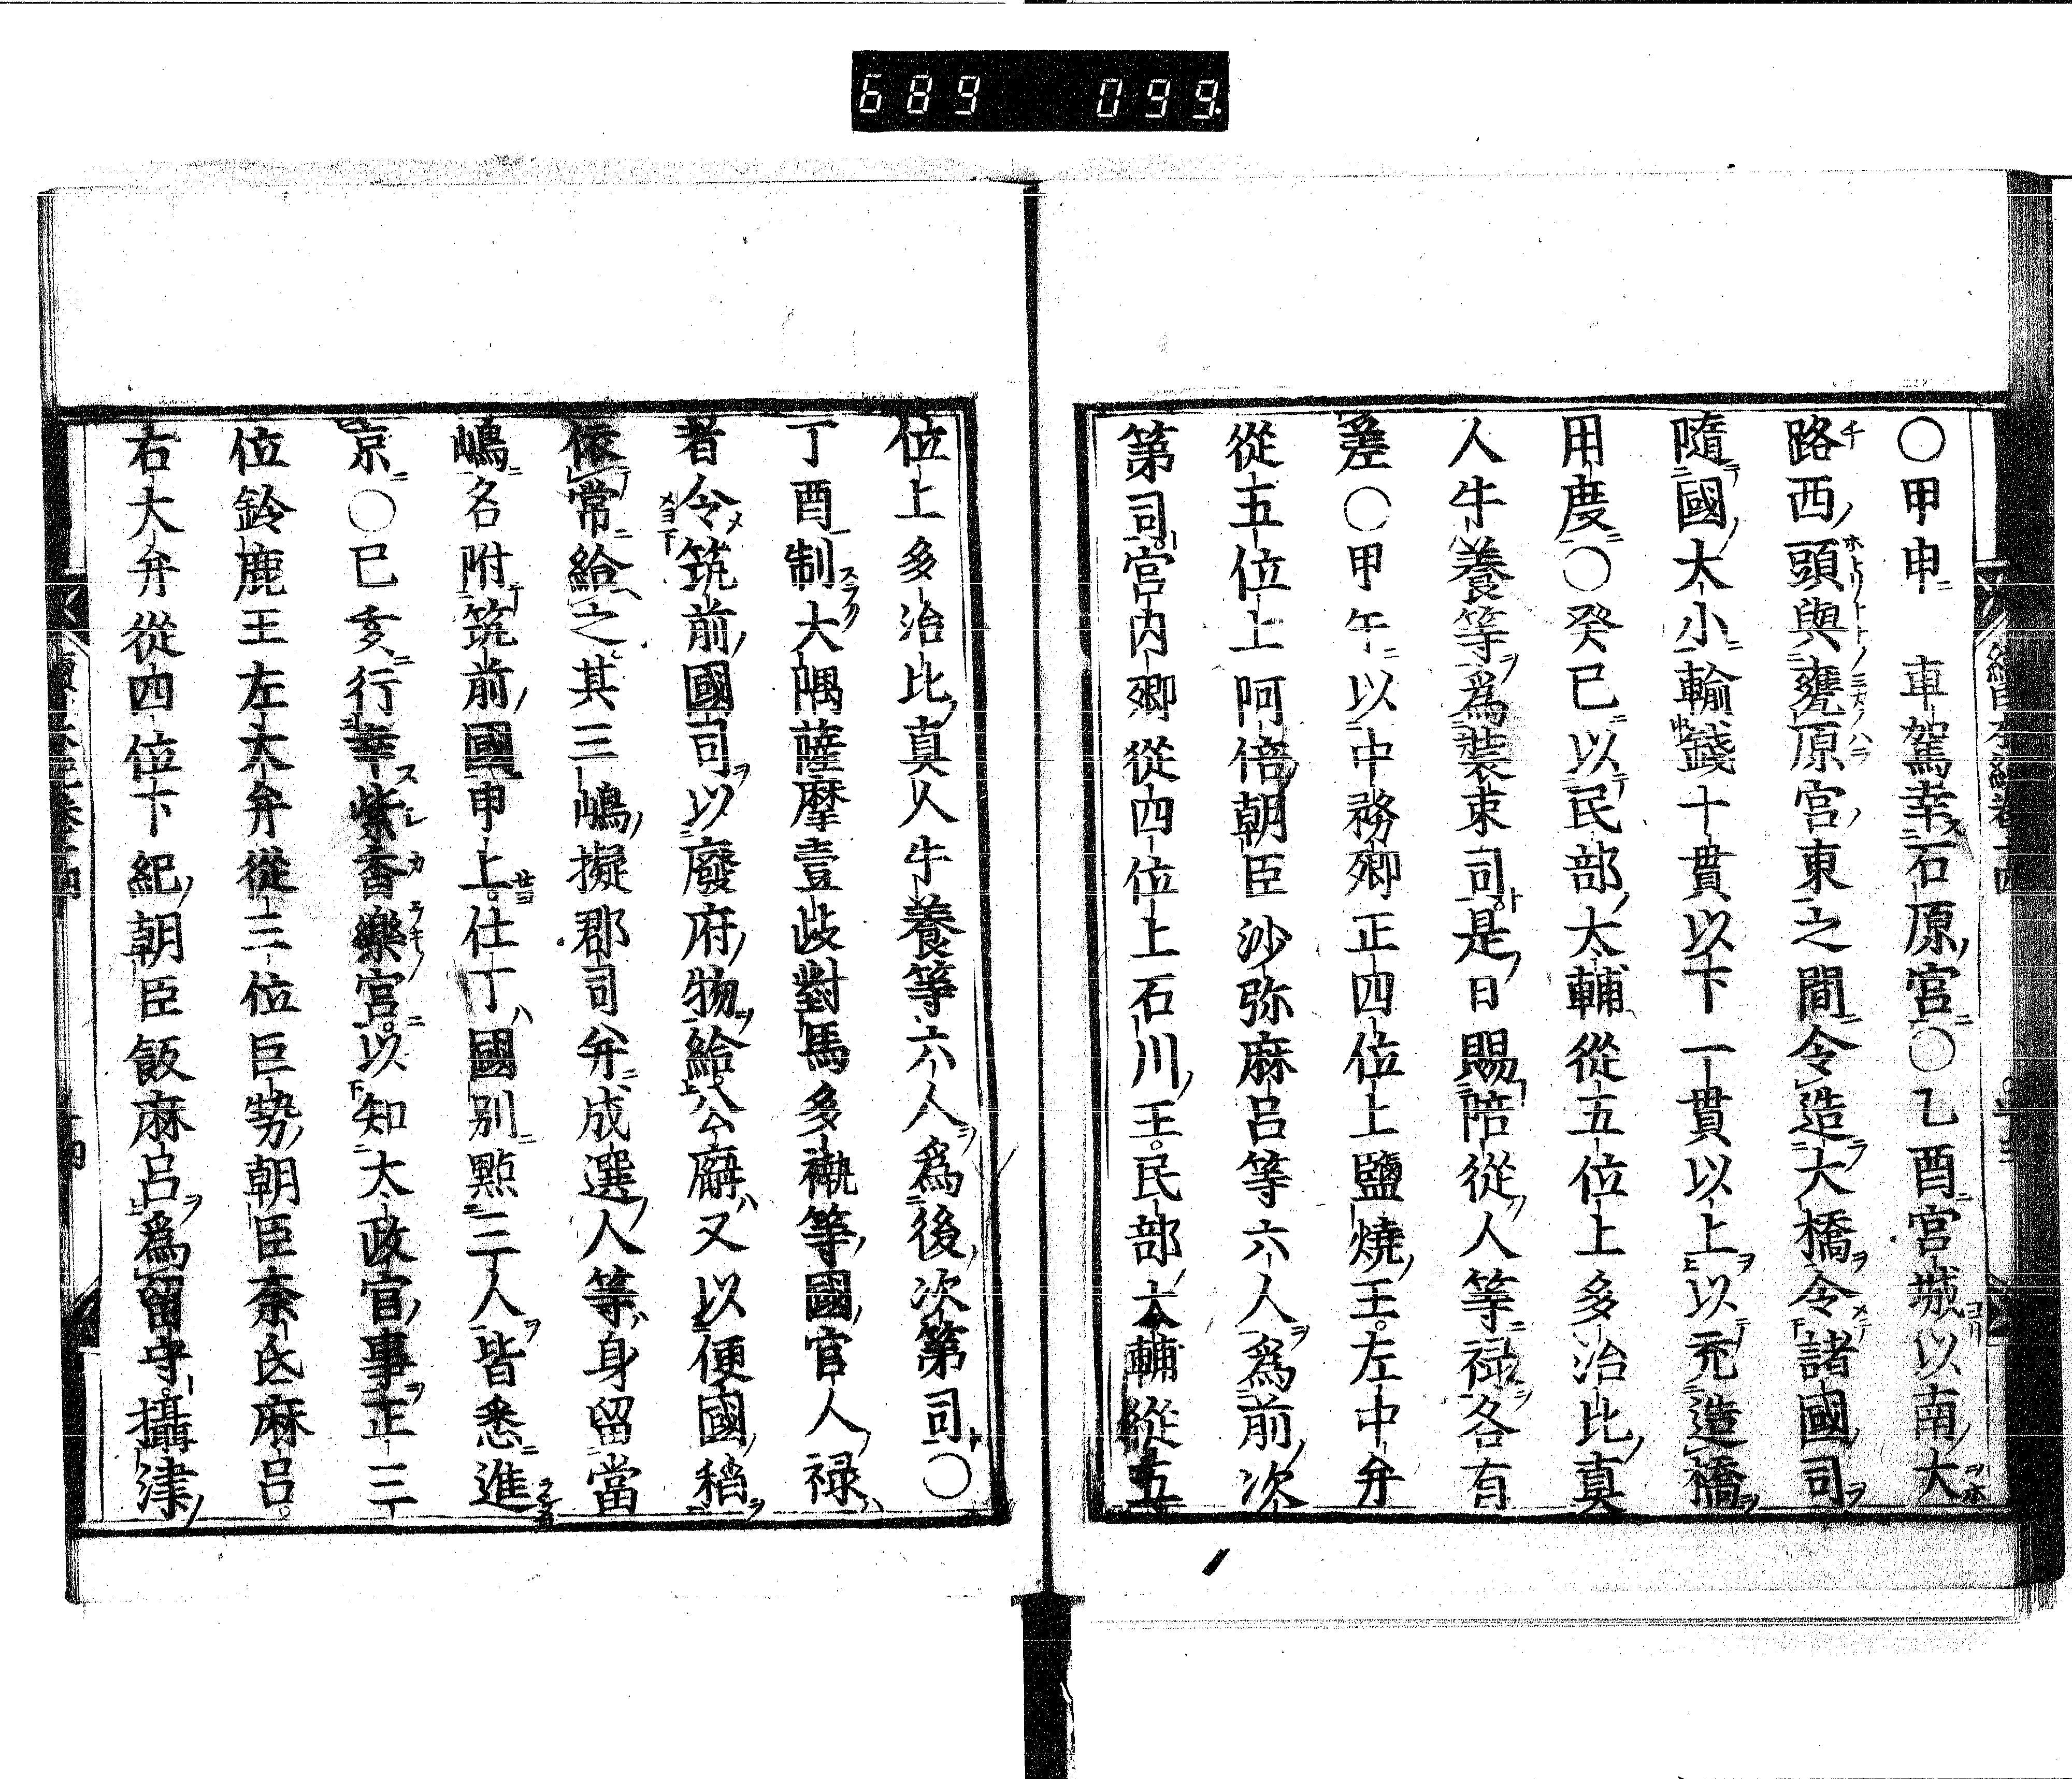 689 099.
〇甲申 車駕幸石原宮〇乙酉宮城以南大
路西頭與甕原宮東之間令造大橋令諸國司
隨國大小輸錢十貫以下一貫以上以充造橋
用度〇癸巳以民部大輔從五位上多治比真
人牛養等爲裝束司是日賜陪從人等祿各有
差〇甲午以中務卿正四位上鹽燒王左中弁
從五位上阿倍朝臣沙弥麻呂等六人爲前次
第司宮内卿從四位上石川王民部大輔從五
位上多治比真人牛養等六人爲後次第司〇
丁酉制大隅薩摩壹岐對馬多褹等國官人祿
者令筑前國司以廢府物給公廨又以便國稻
依常給之其三嶋擬郡司并成選人等身留當
嶋各附筑前國申上仕丁國別點三人皆悉進
京〇己亥行幸紫香樂宮以知太政官事正三
位鈴鹿王左大弁從三位巨勢朝臣奈氐麻呂
右大弁從四位下紀朝臣飯麻呂爲留守攝津